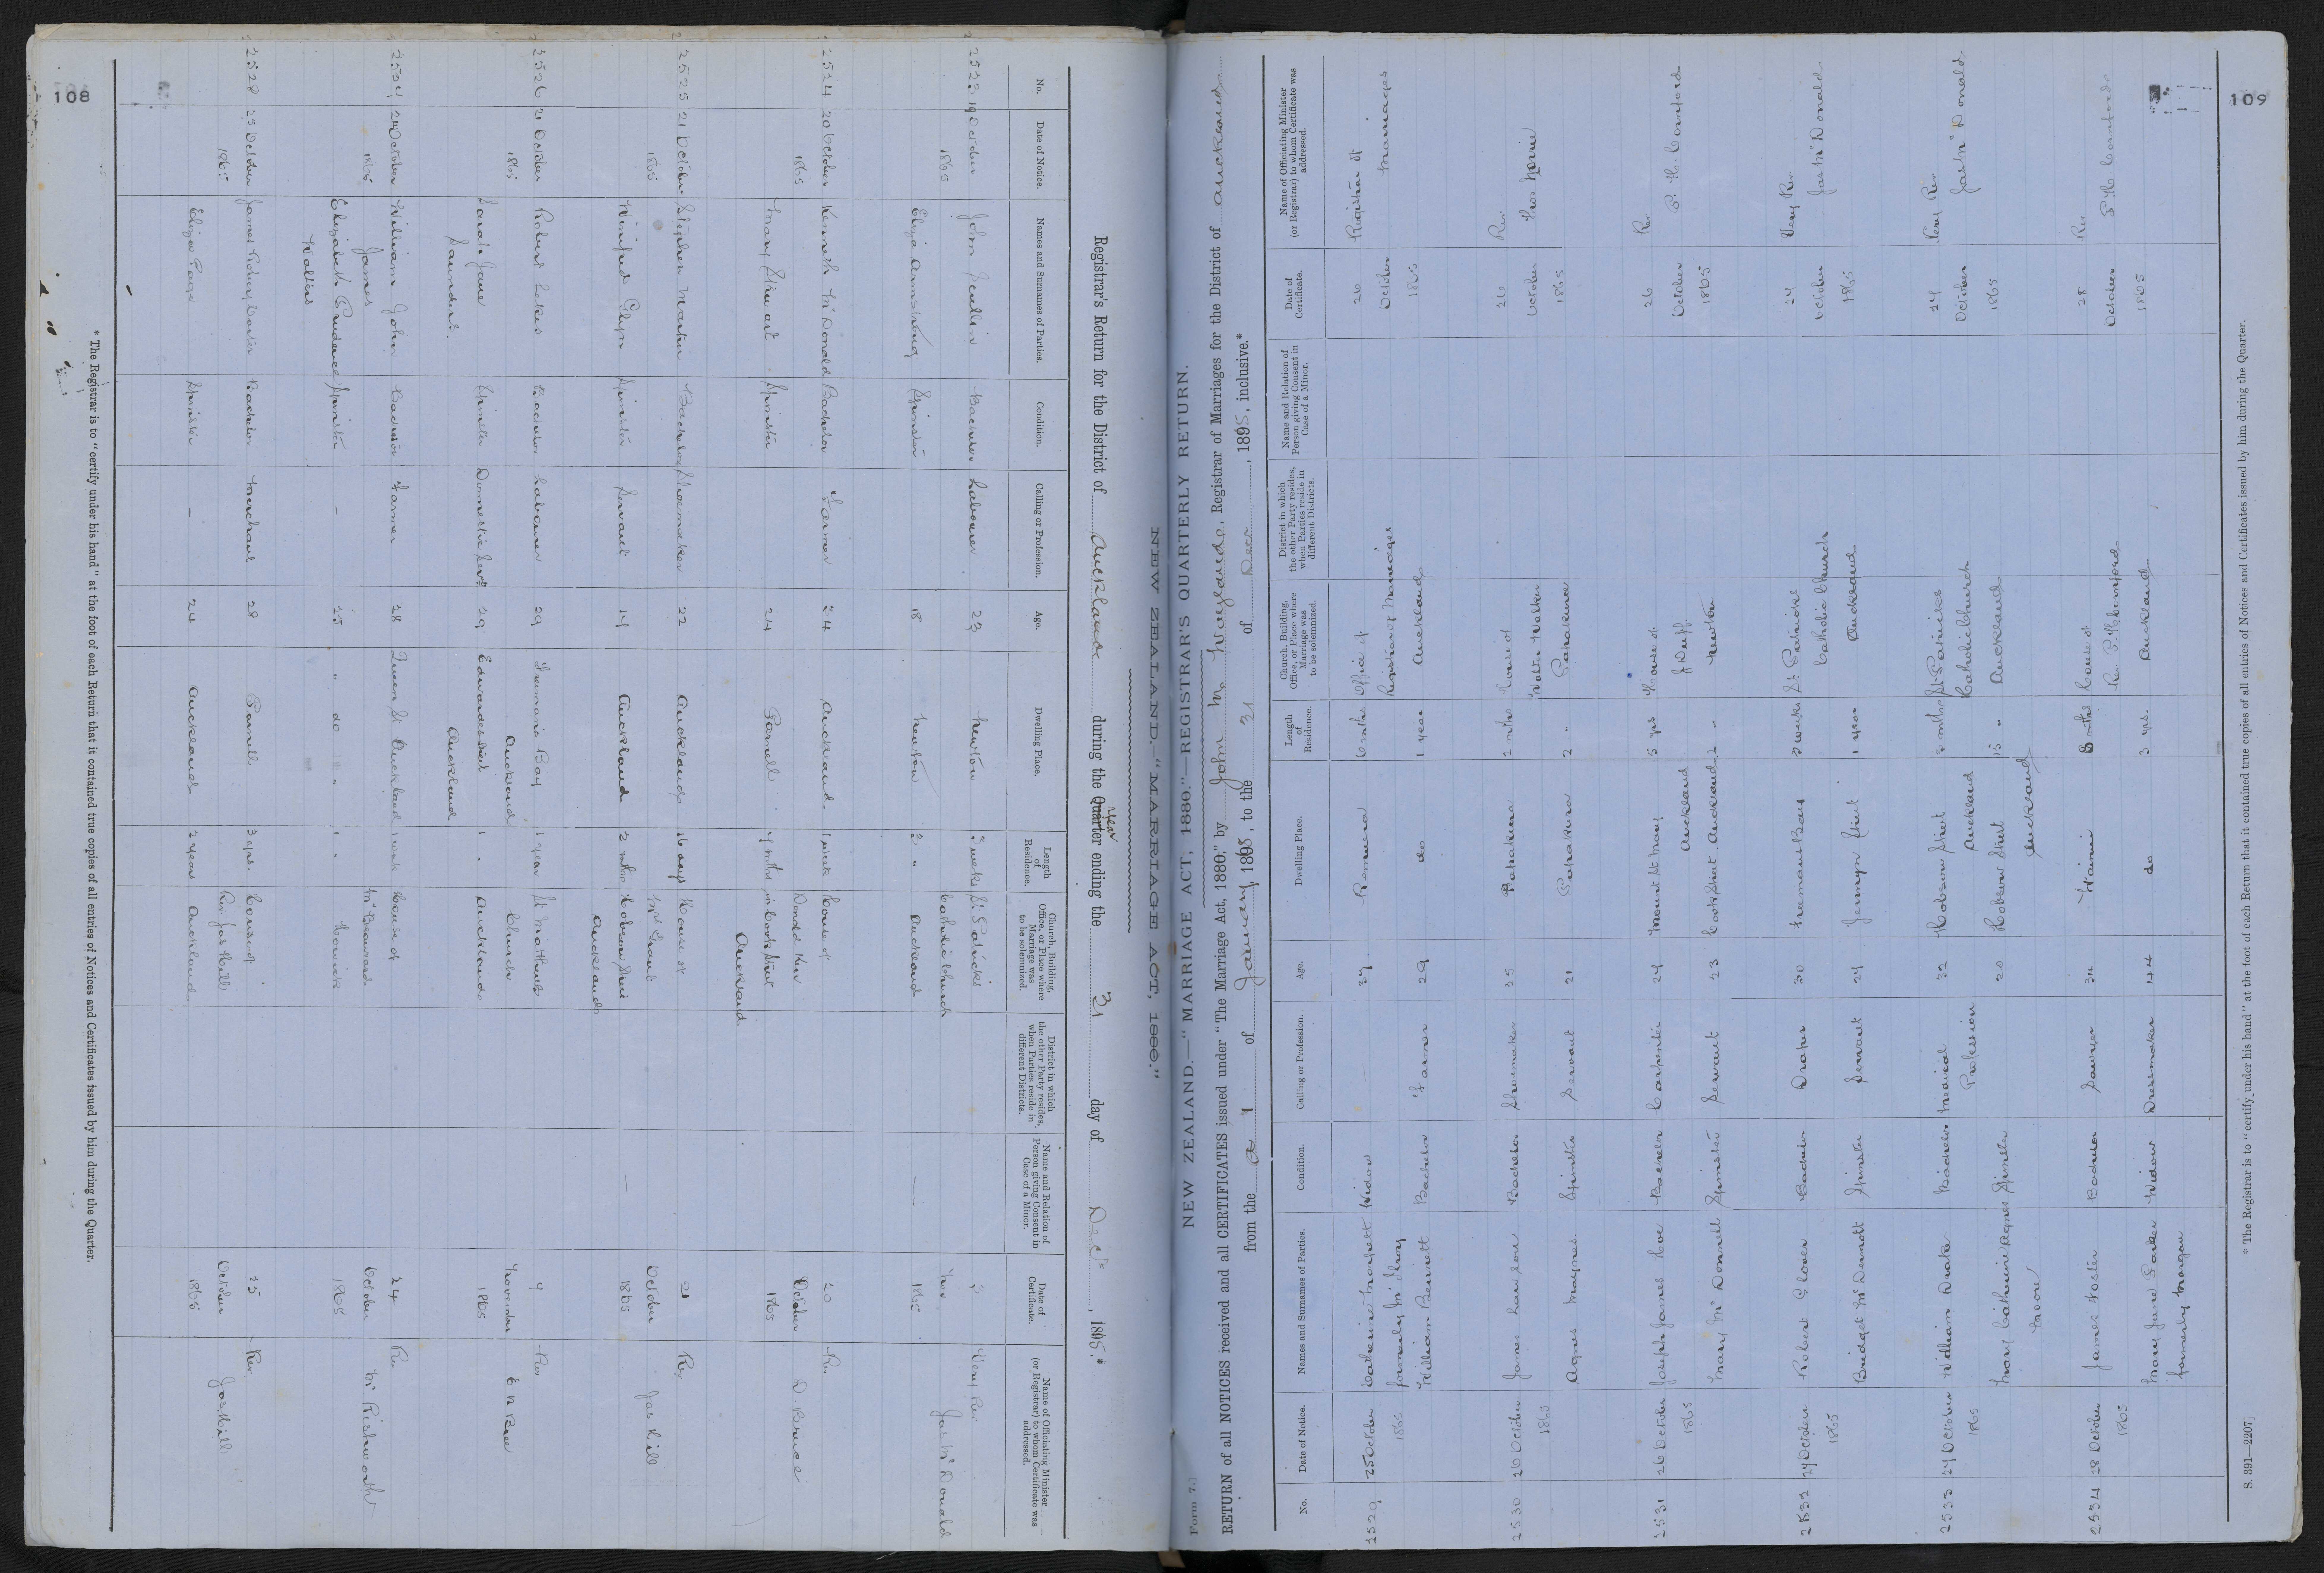 108
NEW ZEALAND.—"MARRIAGE ACT, 1880."
Registrar's Return for the District of Auckland during the Quarter year ending the 31 day of Decr, 1865.*
No.
Date of Notice.
Names and Surnames of Parties.
Condition.
Calling or Profession.
Age.
Dwelling Place.
Length of Residence.
Church, Building, Office, or Place where Marriage was to be solemnized.
District in which the other Party resides, when Parties reside in different Districts.
Name and Relation of Person giving Consent in Case of a Minor.
Date of Certificate.
Name of Officiating Minister (or Registrar) to whom Certificate was addressed.
2523 19 October John Bachelor Labourer 23 Newton 3 weeks St. Patrick's 3 Very Rev.
1865 Eliza Armstrong Spinster 18 Newton 3 " Catholic Church Auckland — Nov. 1865 Jas McDonald
2524 20 October Kenneth McDonald Bachelor Farmer 24 Auckland 1 week House of Donald 20 Rev.
1865 Mary Stewart Spinster 24 Parnell 7 mths in Cook Street Auckland October 1865 D. Bruce
2525 21 October Stephen Martin Bachelor Shoemaker 22 Auckland 16 days House of 21 Rev
1865 Winifred Spinster Servant 19 Auckland 2 mths Mrs Grant Hobson Street Auckland — October 1865 Jas Hill
2526 21 October Robert Bachelor Labourer 29 Bay Auckland 1 year St Matthews 7 Rev
1865 Sarah Jane Saunders Spinster Domestic Servt 29 Edwardes Street Auckland 1 " Church Auckland November 1865
24 October William John James Bachelor Farmer 28 Queen St Auckland 1 week House of 24 Rev
1865 Elizabeth Prudence Walters Spinster — 25 " do " 1 " Howick October 1865
2528 25 October James Bachelor Merchant 28 Parnell 3 yrs. House of 25 Rev.
1865 Eliza Page Spinster — 24 Auckland 2 years Rev Jas Hill Auckland October 1865 Jas. Hill
* The Registrar is to "certify under his hand" at the foot of each Return that it contained true copies of all entries of Notices and Certificates issued by him during the Quarter.
109
Form 7.]
NEW ZEALAND.—"MARRIAGE ACT, 1880."—REGISTRAR'S QUARTERLY RETURN.
RETURN of all NOTICES received and all CERTIFICATES issued under "The Marriage Act, 1880," by John, Registrar of Marriages for the District of Auckland
from the 1 of January, 1865, to the 31 of Decr, 1865, inclusive.*
No.
Date of Notice.
Names and Surnames of Parties.
Condition.
Calling or Profession.
Age.
Dwelling Place.
Length of Residence.
Church, Building, Office, or Place where Marriage was to be solemnized.
District in which the other Party resides, when Parties reside in different Districts.
Name and Relation of Person giving Consent in Case of a Minor.
Date of Certificate.
Name of Officiating Minister (or Registrar) to whom Certificate was addressed.
2529 25 October Catherine formerly McIlroy Widow — 27 Remuera 6 mths Office of 26 Registrar of
1865 William Bennett Bachelor Farmer 29 do 1 year Registrar of Marriages Auckland October 1865 Marriages
2530 26 October James Bachelor Shoemaker 25 Papakura 2 mths House of 26 Rev.
1865 Agnes Maynes. Spinster Servant 21 Papakura 2 " Walter Walker Papakura October 1865 Thos Norrie
2531 26 October Joseph James Bachelor Carpenter 24 Mount St Mary Auckland 5 yrs House of 26 Rev
1865 Mary McDonnell Spinster Servant 23 Cook Street Auckland 2 " J Duff Newton October 1865 P. H. Cornford
2532 27 October Robert Glover Bachelor Draper 30 Freemans Bay 3 weeks St. Patricks 27 Very Rev.
1865 Bridget McDermott Spinster Servant 24 Jermyn Street 1 year Catholic Church Auckland October 1865 Jas McDonald
2533 27 October William Drake Bachelor Medical Profession 32 Hobson Street Auckland St. Patricks 27 Very Rev.
1865 Mary Catherine Agnes Moore Spinster 20 Hobson Street Auckland 15 " Catholic Church Auckland October 1865 Jas McDonald
2534 28 October James Bachelor Sawyer 34 8 mths House of 28 Rev
1865 Mary Jane Parker formerly Morgan Widow Dressmaker 44 do 3 yrs. Rev. P. H. Cornford Auckland October 1865 P. H. Cornford
* The Registrar is to "certify under his hand" at the foot of each Return that it contained true copies of all entries of Notices and Certificates issued by him during the Quarter.
S. 391—2207]